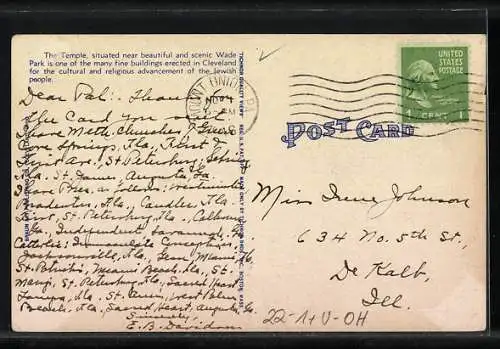 The Temple, situated near beautiful and scenic Wade
Park is one of the many fine buildings erected in Cleveland
for the cultural and religious advancement of the Jewish
people.
Dear Pal: Thanks
the Card you
have Meth. Churches,
Springs, Fla.,
Ave., St. Petersburg,
Fla., St. James, Augusta, Ga.
have Pres. as follows: Westminster
Bradenton, Fla., Candler, Fla.
First, St. Petersburg, Fla. Calhoun
Ga., Independent Savannah, Ga.
Catholics: Immaculate Conception,
Jacksonville, Fla., Gesu Miami, Fla.
St. Patricks, Miami Beach, Fla., St.
Marys, St. Petersburg, Fla., Sacred Heart
Tampa, Fla., St. Anns, West Palm
Beach, Fla., Sacred Heart, Augusta, Ga.
Sincerely,
E. B. Davidson
TICHNOR QUALITY VIEWS
REG. U. S. PAT. OFF. MADE ONLY BY TICHNOR BROS., INC., BOSTON, MASS.
MOUNT UNION
NOV
UNITED
STATES
POSTAGE
1 CENT 1
POST CARD
Miss Irene Johnson
634 No. 5th St.,
De Kalb,
Ill.
22-1+V-OH